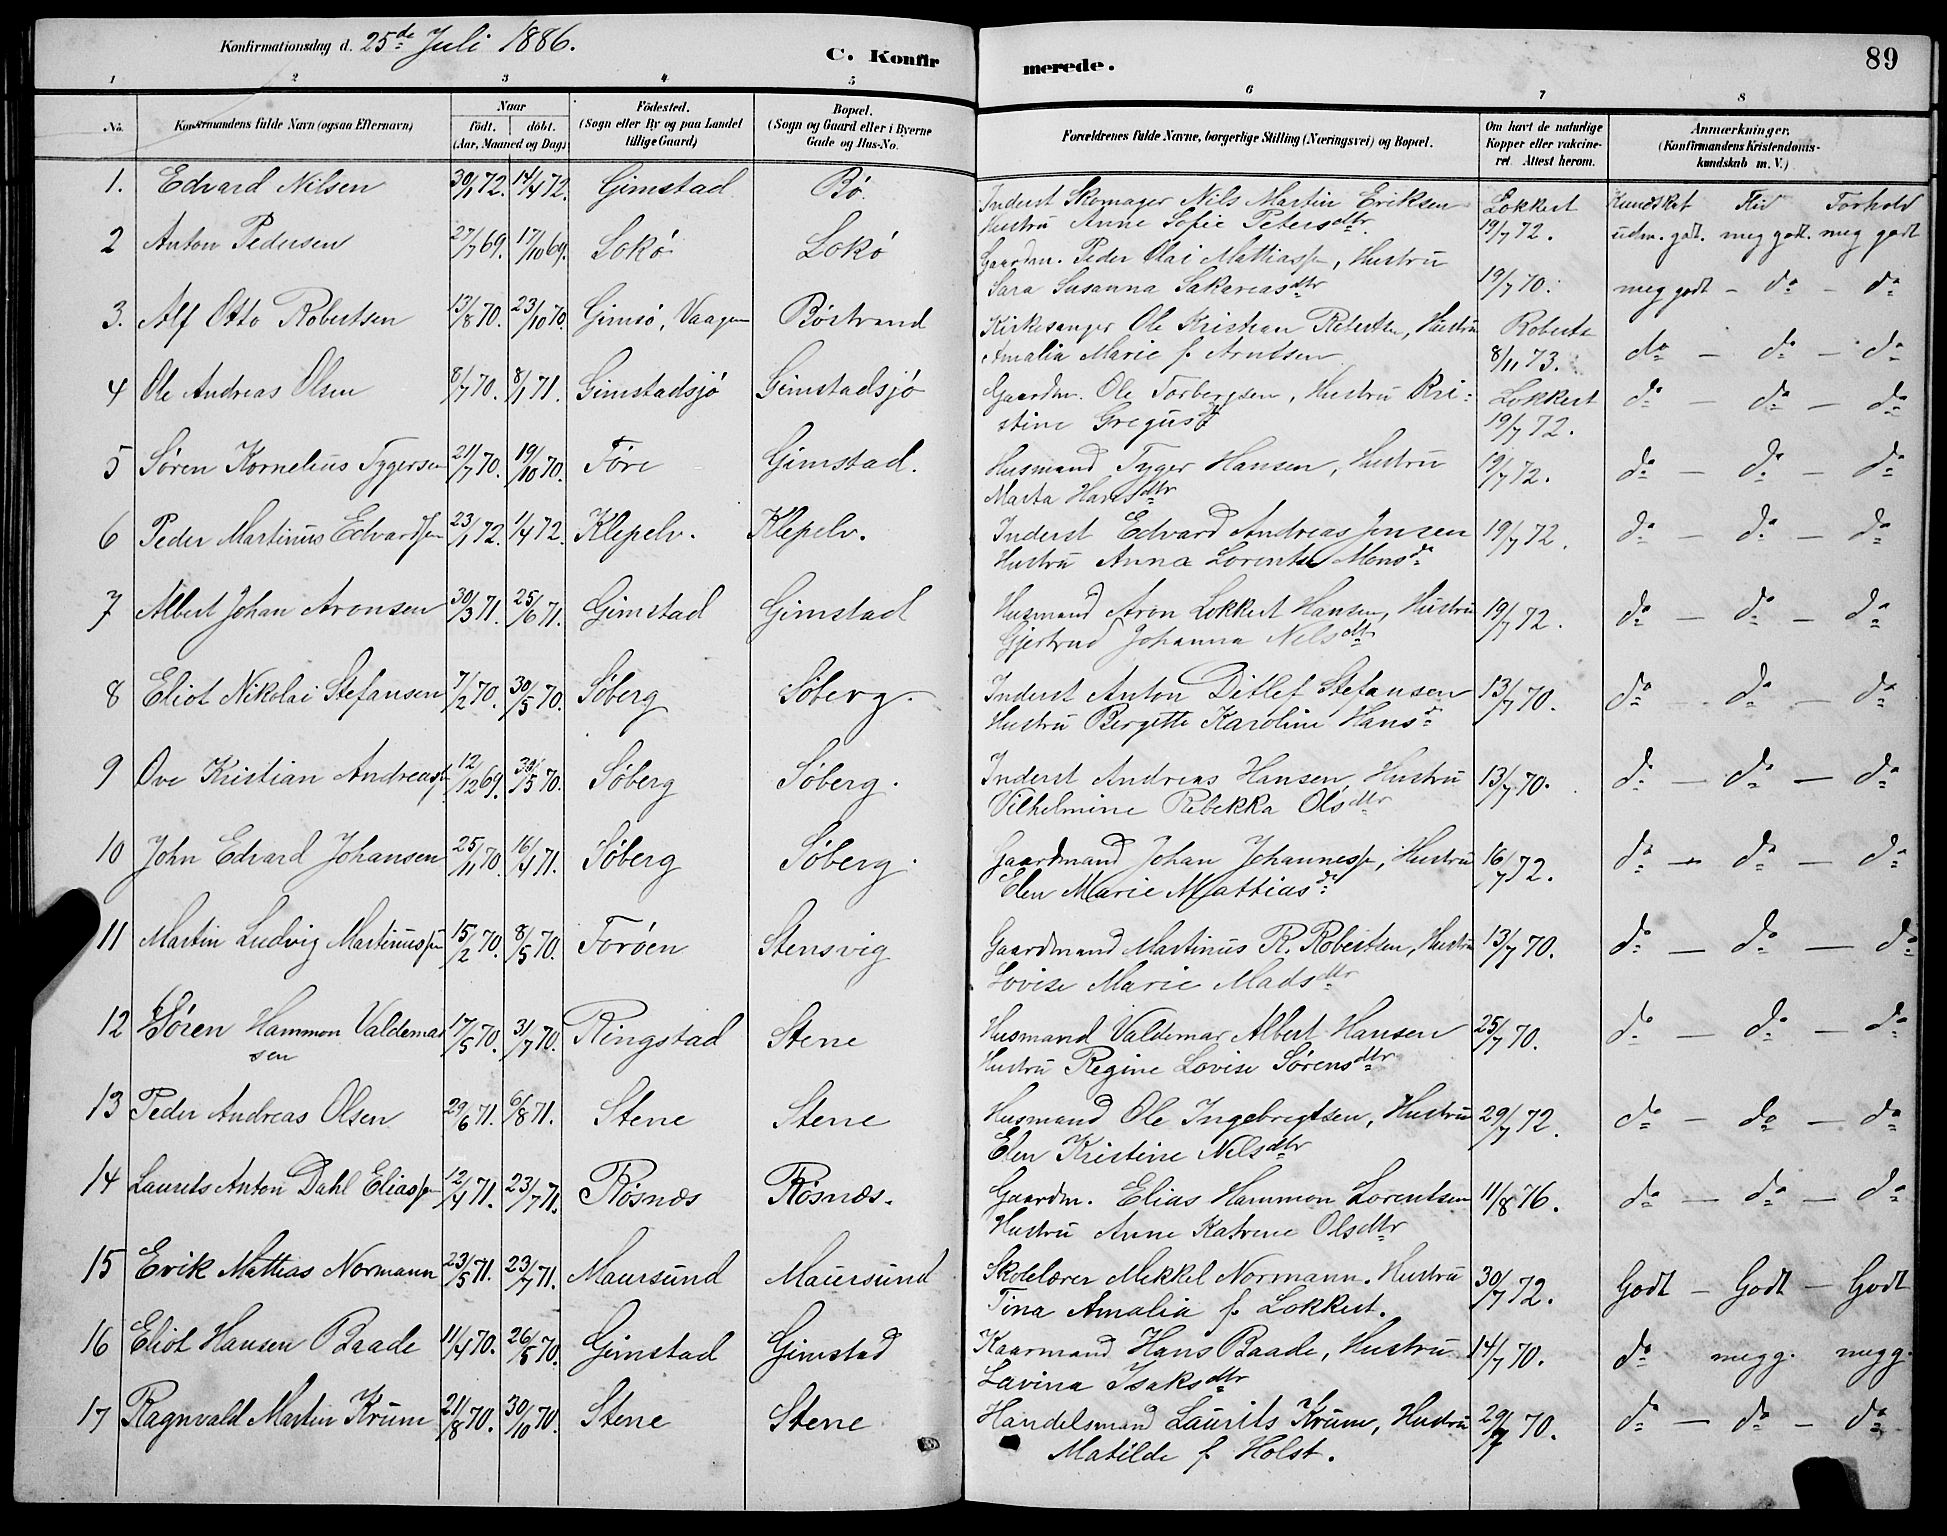 Konfirmationsdag d. 25de Juli 1886.
C. Konfirmerede.
89
1 2 3 4 5 6 7 8
No. Konfirmandens fulde Navn (ogsaa Efternavn) Naar födt. döbt. (Aar, Maaned og Dag) Födested. (Sogn eller By og paa Landet tillige Gaard) Bopæl. (Sogn og Gaard eller i Byerne Gade og Hus-No. Forældrenes fulde Navne, borgerlige Stilling (Næringsvei) og Bopæl. Om havt de naturlige Kopper eller vakcineret. Attest herom. Anmærkninger. (Konfirmandens Kristendomskundskab m. V.)
Kundskab Flid Forhold
1. Edvard Nilsen 30/1 72. 14/4 72. Gimstad Bø. Inderst Skomager Nils Martin Eriksen Lokkert
Hustru Anne Sofie Petersdtr. 19/7 72. udm. godt. meg godt. meg godt
2 Anton Pedersen 27/7 69. 17/10 69. Lokø Lokø Gaardm. Peder Olai Mattiass, Hustru
Sara Susanna Sakariasdtr 19/7 70. meg godt – do – do
3. Alf Otto Robertsen 13/8 70. 23/10 70. Gimsø, Vaagen Børstrand Kirkesanger Ole Kristian Robertsen, Hustru Roberts
Amalia Marie f. Arntsen 8/11 73. do – do – do
4 Ole Andreas Olsen 8/7 70. 8/1 71. Gimstadsjö Gimstadsjö Gaardm. Ole Torbergsen, Hustru Kri- Lokkert do – do – do
stine Gregusd 19/7 72.
5 Søren Kornelius Tygersen 21/7 70. 19/10 70. Føre Gimstad. Husmand Tyger Hansen, Hustru 19/7 72. do – do – do
Marta Hansdtr
6 Peder Martinus Edvardsen 23/1 72. 1/4 72. Klepelv. Klepelv. Inderst Edvard Andreas Jensen 19/7 72. do – do – do
Hustru Anna Lorentse Monsd
7 Albert Johan Aronsen 30/3 71. 25/6 71. Gimstad Gimstad Husmand Aron Lokkert Hansen, Hustru 19/7 72. do – do – do
Gjertrud Johanna Nelsdtr
8 Eliot Nikolai Stefansen 7/2 70. 30/5 70. Søberg Søberg. Inderst Anton Ditlef Stefansen 13/7 70. do – do – do
Hustru Bergitte Karoline Hansd
9 Ove Kristian Andreass 12/12 69. 30/5 70. Søberg Søberg. Inderst Andreas Hansen, Hustru 13/7 70. do – do – do
Vilhelmine Rebekka Olsdtr
10 John Edvard Johansen 25/11 70. 16/4 71. Søberg Søberg. Gaardmand Johan Johanness, Hustru 16/7 72. do – do – do
Elen Marie Mattiasd
11 Martin Ludvig Martinussen 15/2 70. 8/5 70. Forøen Stensvig Gaardmand Martinus R. Robertsen, Hustru 13/7 70. do – do – do
Lovise Marie Madsdtr
12 Søren Hammon Valdemar 17/5 70. 31/7 70. Ringstad Stene Husmand Valdemar Albert Hansen 25/7 70. do – do – do
sen Hustru Regine Lovise Sørensdtr
13 Peder Andreas Olsen 29/6 71. 6/8 71. Stene Stene Husmand Ole Ingebrigtsen, Hustru 29/7 72. do – do – do
Elen Kristine Nelsdtr
14 Laurits Anton Dahl Eliass 12/4 71. 23/7 71. Røsnæs Røsnæs. Gaardm. Elias Hammon Lorentsen 11/8 76. do – do – do
Hustru Anne Katrine Olsdtr
15 Erik Mattias Normann 23/5 71. 23/7 71. Maursund Maursund Skolelærer Mekkel Normann. Hustru 30/7 72. Godt – Godt – Godt
Tina Amalia f. Lokkert.
16 Eliot Hansen Baade 11/4 70. 26/5 70. Gimstad Gimstad Kaarmand Hans Baade, Hustru 14/7 70. do meg g. meg g.
Lavina Isaksdtr
17 Ragnvald Martin Krum 21/8 70. 30/10 70. Stene Stene Handelsmand Laurits Krum, Hustru 29/7 70. do – do – do
Matilde f Holst.